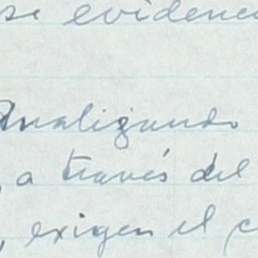 se evidenc
Analizando
, a través del
, exigen el c